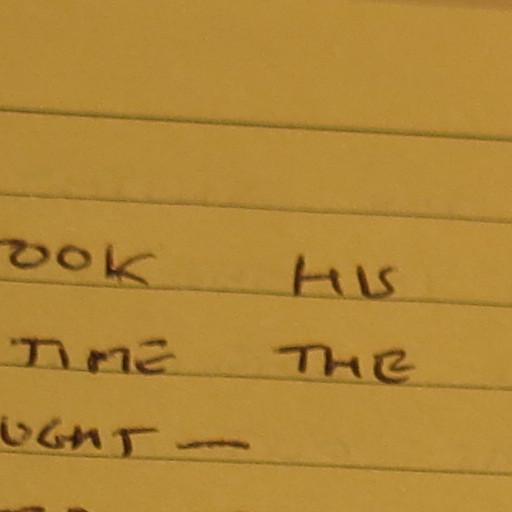 OOK HIS
TIME THE
UGHT —